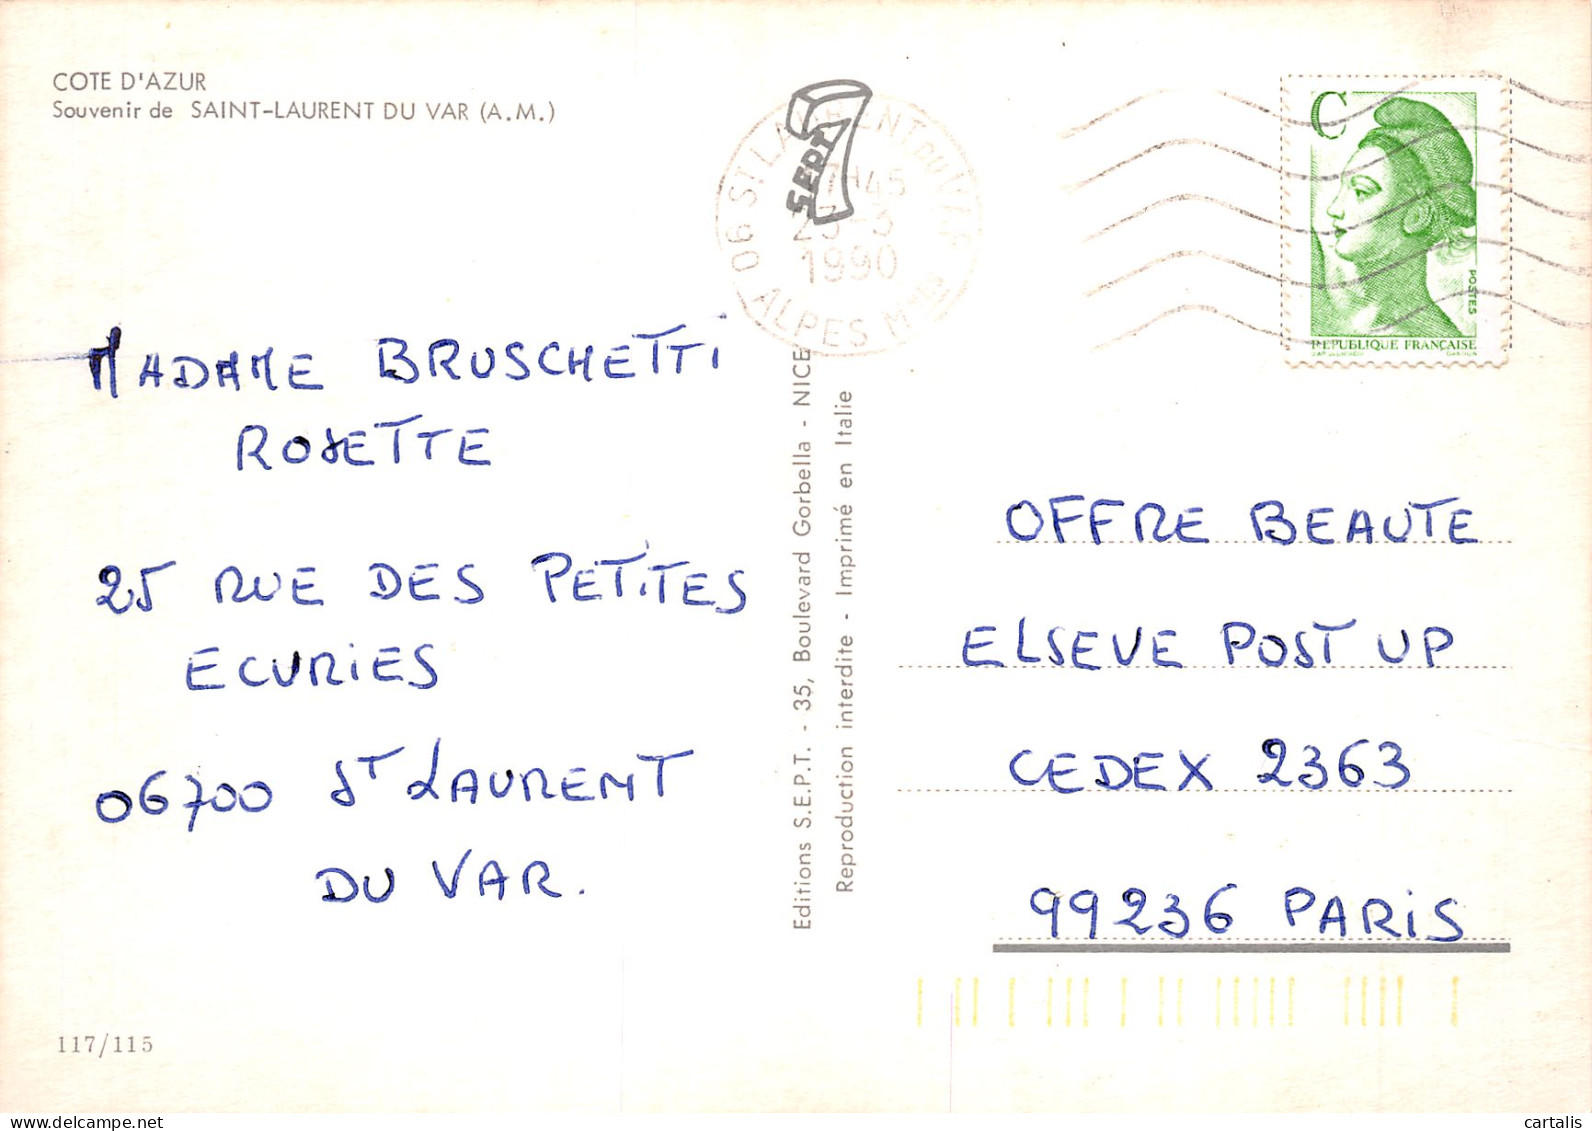 COTE D'AZUR
Souvenir de SAINT-LAURENT DU VAR (A.M.)
SEPT
06 ST LAURENT DU VAR
17H45
23-3
1990
ALPES Mmes
C
POSTES
REPUBLIQUE FRANÇAISE
MADAME BRUSCHETTI
ROSETTE
25 RUE DES PETITES
ECURIES
06700 ST LAURENT
DU VAR.
Editions S.E.P.T. - 35, Boulevard Gorbella - NICE
Reproduction interdite - Imprimé en Italie
OFFRE BEAUTE
ELSEVE POST UP
CEDEX 2363
99236 PARIS
117/115
cartalis